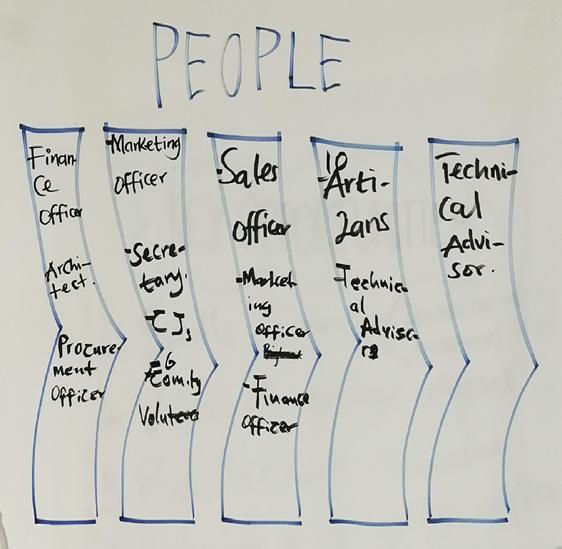 PEOPLE
Finan-
ce
officer
Archi-
tect.
Procure-
ment
Officer
-Marketing
officer
-Secre-
tary.
-CJs
-6
Com.ty
Volunteer
-Sales
officer
-Market
ing
officer
-Finance
officer
-10
Arti-
zans
-Technic
al
Advisor
Techni-
cal
Advi-
sor.